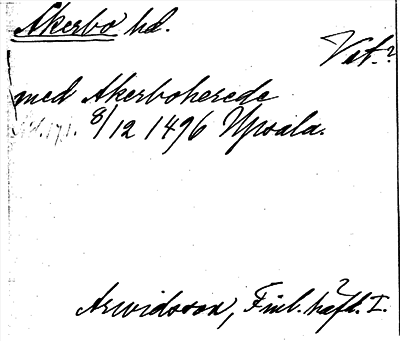 Åkerbo hd.
Vst.?
med Akerboherede
8/12 1496 Upsala.
Arwidsson, Finl. häfd. I.